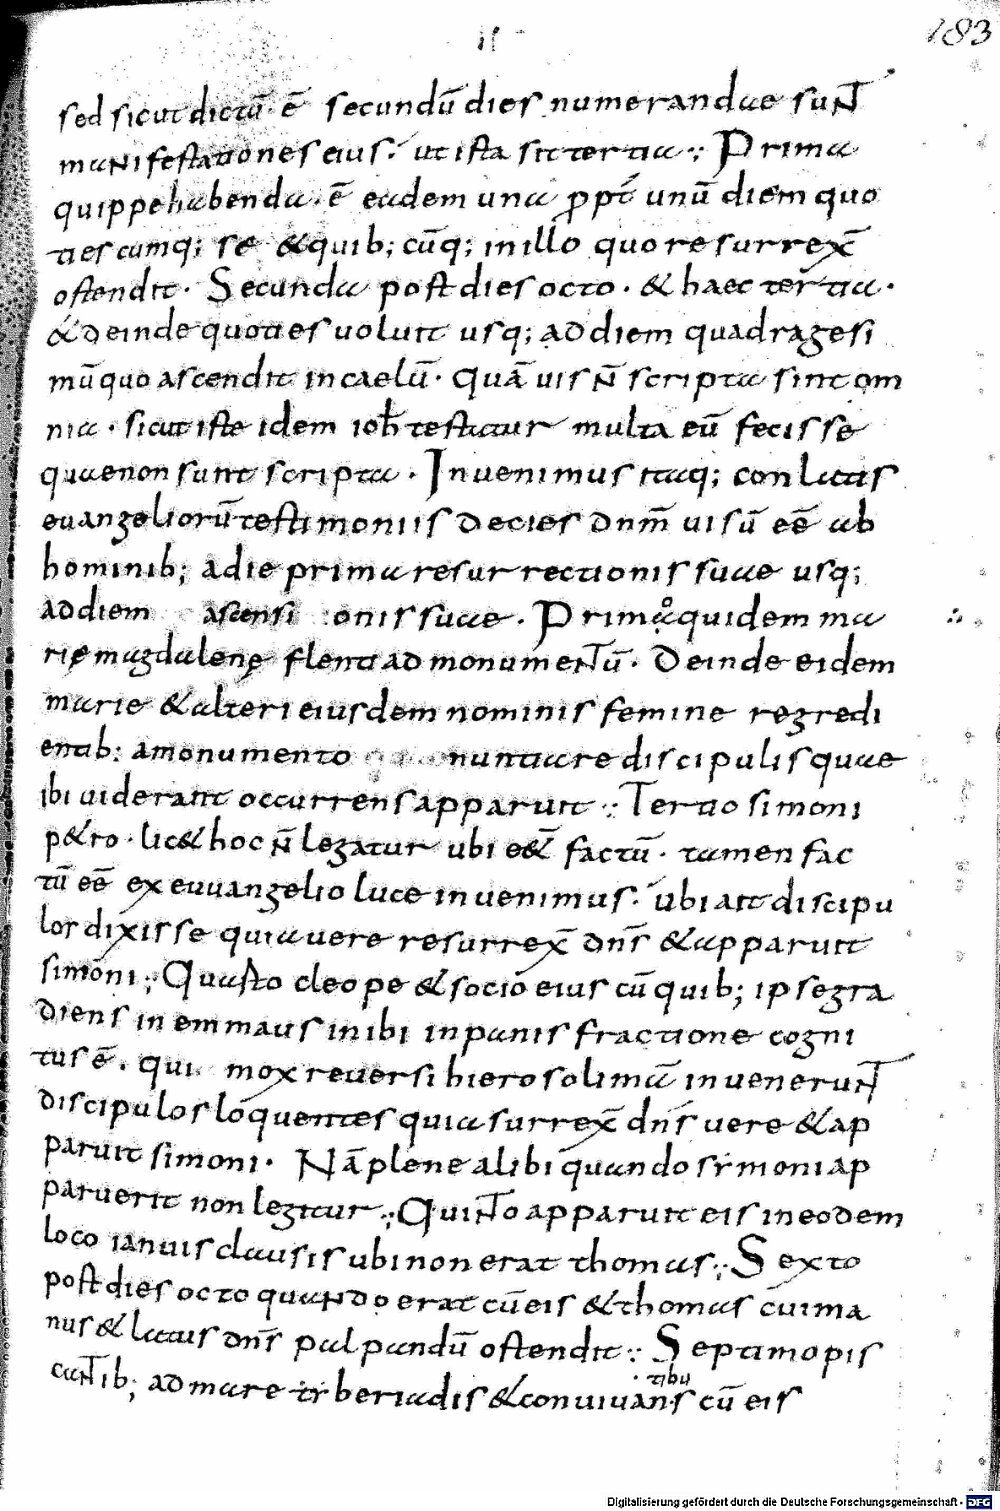 183
sed sicut dictū ē secundū dies numerandae suNT
maNifestationes eius. ut ista sit tertia. Prima
quippe habenda ē eadem una ꝓpt̄ unū diem quo
tiescumq; se &quib; cūq; in illo quo resurrex̄
ostendit. Secunda post dies octo. & haec tertia.
& deinde quoties voluit usq; ad diem quadragesi
mū quo ascendit in caelū. Quāuis N̄ scripta sint om
nia. sicut iste idem ioħ testatur multa eū fecisse
quae non sunt scripta. Invenimus itaq; conlatis
evangeliorū testimoniis decies dnm̄ uisū eē ab
hominib; a die prima resurrectionis suae usq;
ad diem ascensionis suae. Primo quidem ma
rię magdalenę flenti ad monumeNTū. Deinde eidem
marie & alteri eiusdem nominis femine regredi
entib: a monumento nuntiare discipulis quae
ibi viderant occurrens apparuit. Tertio simoni
p&ro. lic& hoc N̄ legatur ubi e&̄ factū. tamen fac
tū eē ex euuangelio luce invenimus. ubi ait discipu
los dixisse quia vere resurrex̄ dns̄ & apparuit
simoni. Quarto cleope & socio eius cū quib; ipse gra
diens in emmaus in ibi in panis fractione cogni
tus ē. qui mox reversi hierosolimā inveneruNT
discipulos loquentes quia surrex̄ dns̄ vere & ap
paruit simoni. Nā plene alibi quando symoni ap
paruerit non legitur. QuiNTo apparuit eis in eodem
loco ianuis clausis ubi non erat thomas. Sexto
post dies octo quaNdo erat cū eis & thomas cui ma
nus & latus dns̄ palpandū ostendit. Septimo pis
caNTib; ad mare tyberiadis & convivans cū eis
tibu
Digitalisierung gefördert durch die Deutsche Forschungsgemeinschaft - DFG